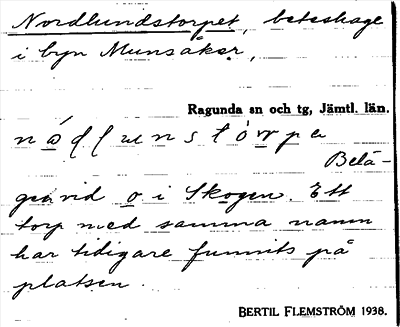 Nordlundstorpet, beteshage
i byn Munsåker,
Ragunda sn och tg, Jämtl. län.
Belä-
gen vid o i Skogen. Ett
torp med samma namn
har tidigare funnits på
platsen.
BERTIL FLEMSTRÖM 1938.